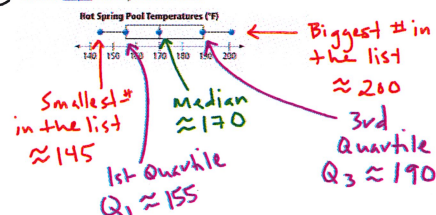 Hot Spring Pool Temperatures (°F)
140 150 160 170 180 190 200
Biggest # in
the list
≈ 200
Smallest #
in the list
≈ 145
Median
≈ 170
3rd
Quartile
Q3 ≈ 190
1st Quartile
Q1 ≈ 155